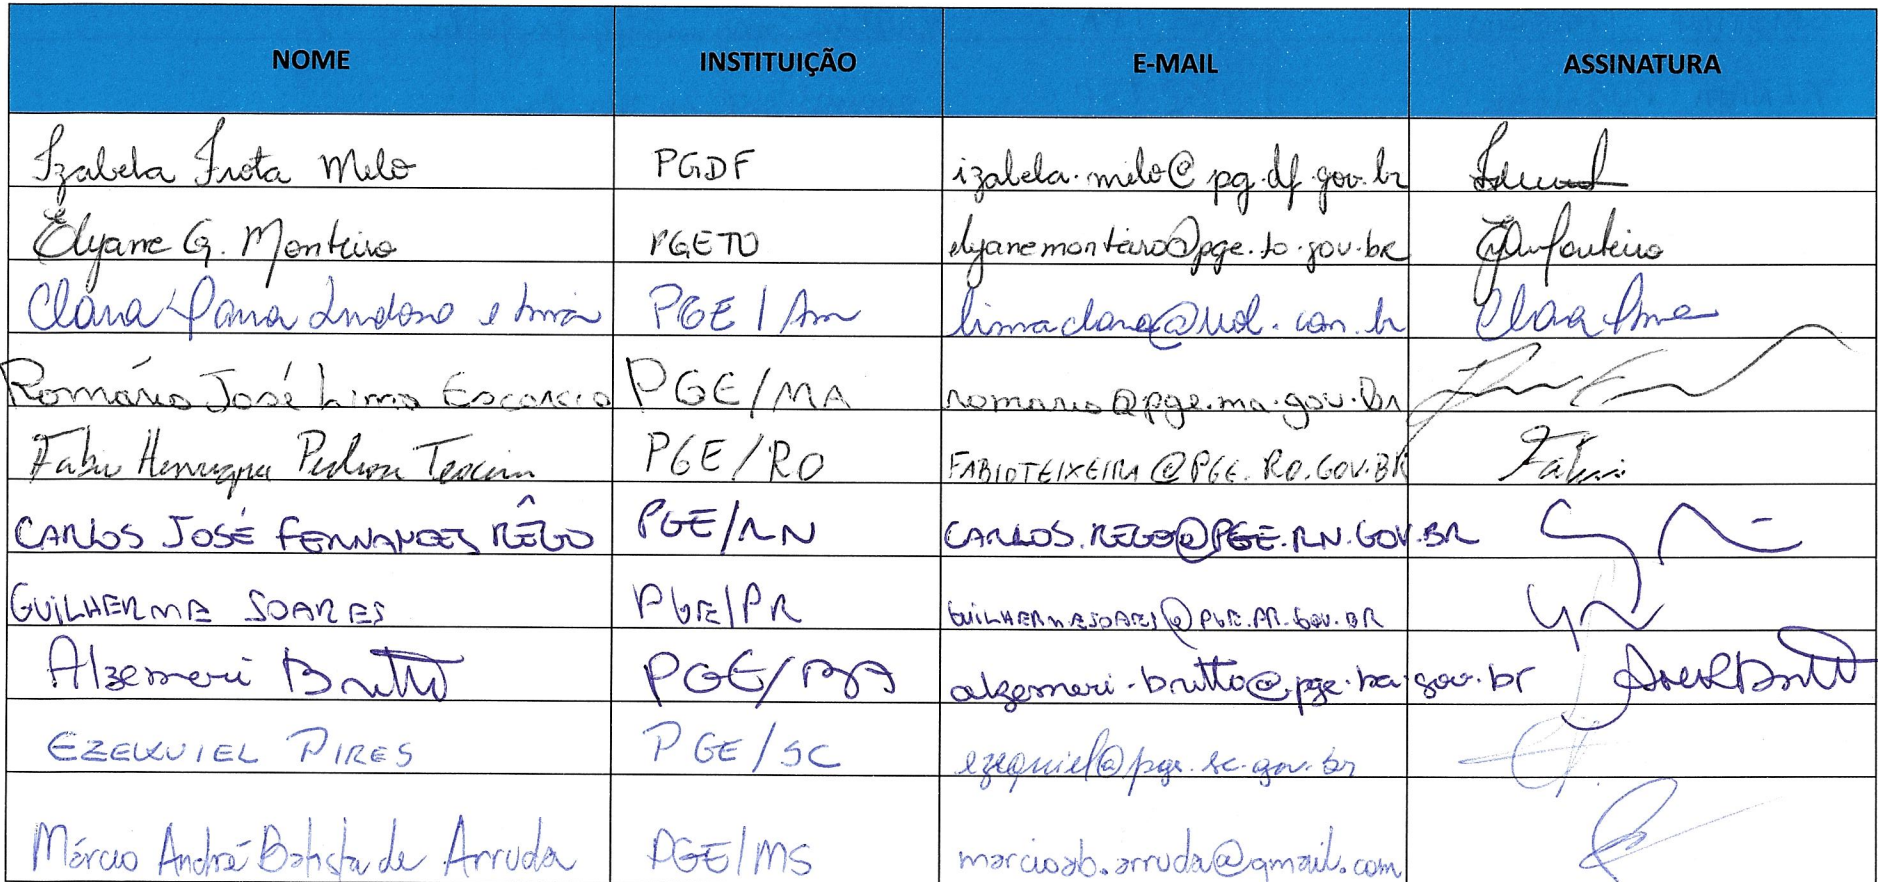 NOME INSTITUIÇÃO E-MAIL ASSINATURA
Izabela Frota Melo PGDF izabela.melo@pg.df.gov.br
Elyane G. Monteiro PGETO elyanemonteiro@pge.to.gov.br
Clara Lindoso e Lima PGE/Am limaclara@uol.com.br Clara Lima
Romário José Lima Escorcio PGE/MA romario@pge.ma.gov.br
Fabio Henrique Pedrosa Teixeira PGE/RO FABIOTEIXEIRA@PGE.RO.GOV.BR Fabio
CARLOS JOSÉ FERNANDES RÊGO PGE/RN CARLOS.REGO@PGE.RN.GOV.BR
GUILHERME SOARES PGE/PR GUILHERMESOARES@PGE.PR.GOV.BR
Alzemeri Britto PGE/BA alzemeri.britto@pge.ba.gov.br
EZEQUIEL PIRES PGE/SC ezequiel@pge.sc.gov.br
Márcio André Batista de Arruda PGE/MS marcioab.arruda@gmail.com